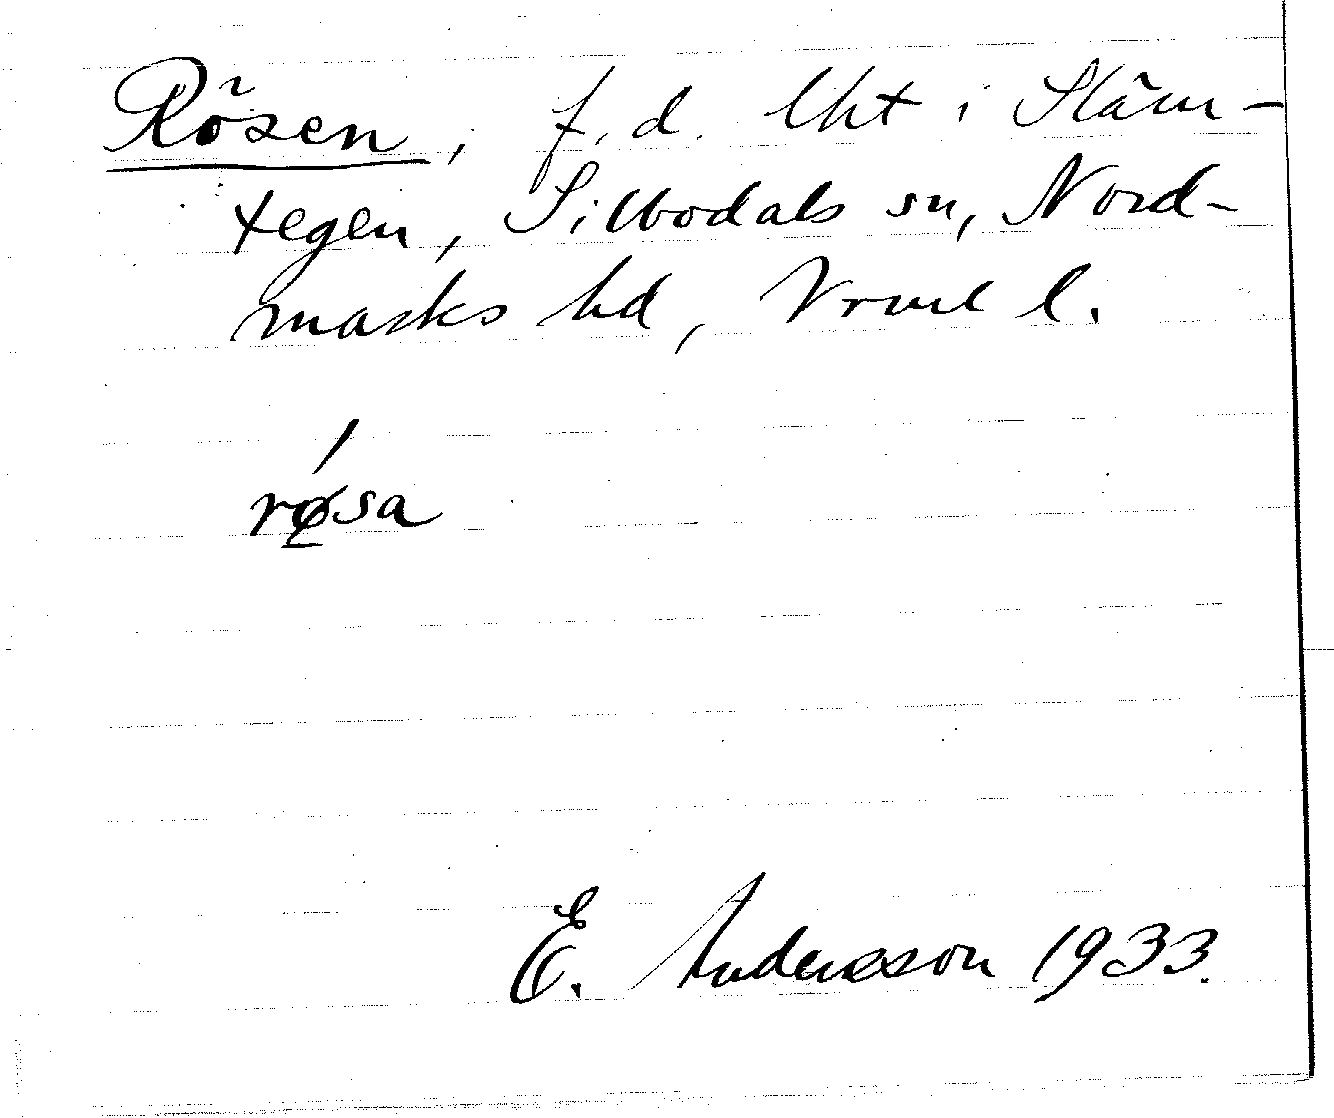 Rösen, f.d. lht i Släm-
tegen, Silbodals sn, Nord-
marks hd, Vrml l.
/
røsa
E. Andersson 1933.